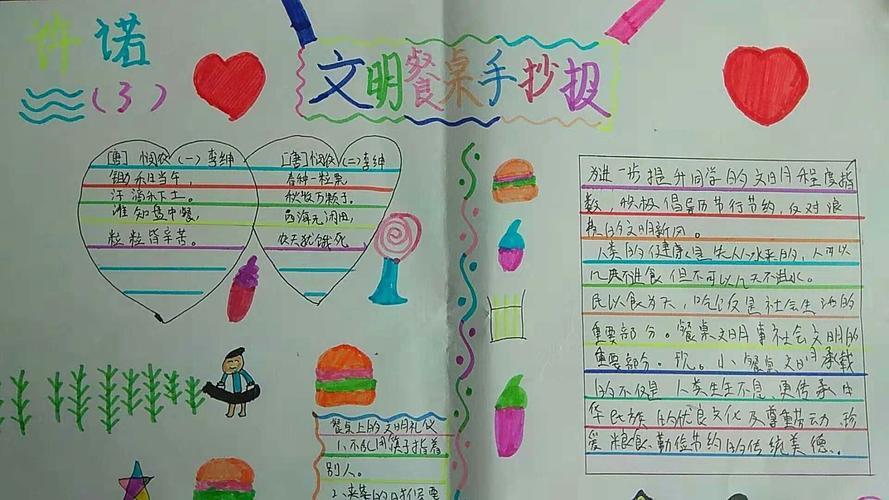 许诺
(3)
文明餐桌手抄报
[唐] 悯农 (一) 李绅
锄禾日当午,
汗滴禾下土。
谁知盘中餐,
粒粒皆辛苦。
[唐] 悯农 (二) 李绅
春种一粒粟
秋收万颗子。
四海无闲田,
农夫犹饿死。
餐桌上的文明礼仪
1、不乱用筷子指着
别人。
为进一步提升同学的文明程度指
数,积极倡导厉节行节约,反对浪
费的文明新风。
人类的健康是
人可以
几天不进食但不可以几天不进水。
民以食为天,吃饭是社会生活的
重要部分。餐桌文明事社会文明的
重要部分。
小餐桌文明承载
的不仅是人类生生不息,更传承中
华民族的优良文化及尊重劳动、珍
爱粮食、勤俭节约的传统美德。